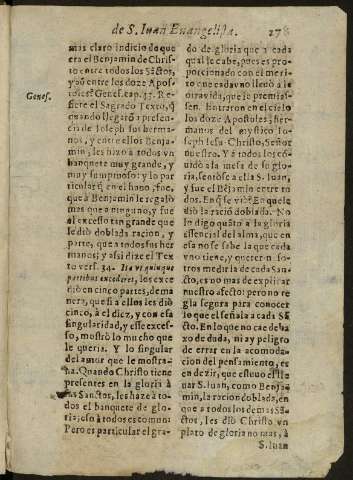 de S. Iuan Euangelista. 278
mas claro indicio de que
era el Benjamin de Chris-
to entre todos los Sãctos,
y aũ entre los doze Apos-
Genes. cap. 43. Re-
Genes.
fiere el Sagrado Texto, q̃
quando llegarõ a presen-
cia de Ioseph sus herma-
nos, y entre ellos Benja-
min, les hizo à todos vn
banquete muy grande, y
muy sumptuoso: y lo par
ticular q̃ en el huuo, fue,
que à Benjamin le regalò
mas que a ninguno, y fue
el excesso tan grande que
le diò doblada racion, y
parte, que a todos sus her
manos; y assi dize el Tex
to vers. 34. Ita vt quinque
partibus excederet, los exce
diò en cinco partes, de ma
nera, que si a ellos les diò
cinco, à el diez, y con esa
singularidad, y este exces-
so, mostrò lo mucho que
le queria. Y lo singular
del amor que le mostra-
ua. Quando Christo tiene
presentes en la gloria à
sus Sanctos, les haze à to-
dos el banquete de glo-
ria; esso à todos es comun:
Pero es particular el gra-
do de gloria que a cada
qual le cabe, pues es pro-
porcionado con el meri-
to que cada vno lleuò a la
otra vida, que le premias-
sen. Entraron en el cielo
los doze Apostoles, her-
manos del mystico Io-
seph Iesu-Christo, Señor
nuestro. Y a todos los cõ-
uidò a la mesa de su glo-
ria, sentòse a ella S. Iuan,
y fue el Bẽjamin entre to
dos. En que se viò? En que le
diò la raciõ doblada. No
lo digo quãto a la gloria
essencial del alma, que en
essa no se sabe la que cada
vno tiene, y querer nosotros
medirla de cada San-
cto, es no mas de explicar
nuestro afecto: pero no re
gla segura para conocer
lo que el señala a cada Sã
cto. En lo que no cae de ba
xo de duda, ni ay peligro
de errar en la acomoda-
cion del pensamiento, es
en dezir, que estuuo el lle
uar S. Iuan, como Benja-
min, la racion doblada, en
que a todos los demas Sã-
ctos, les diò Christo vn
plato de gloria no mas, à
S. Iuan